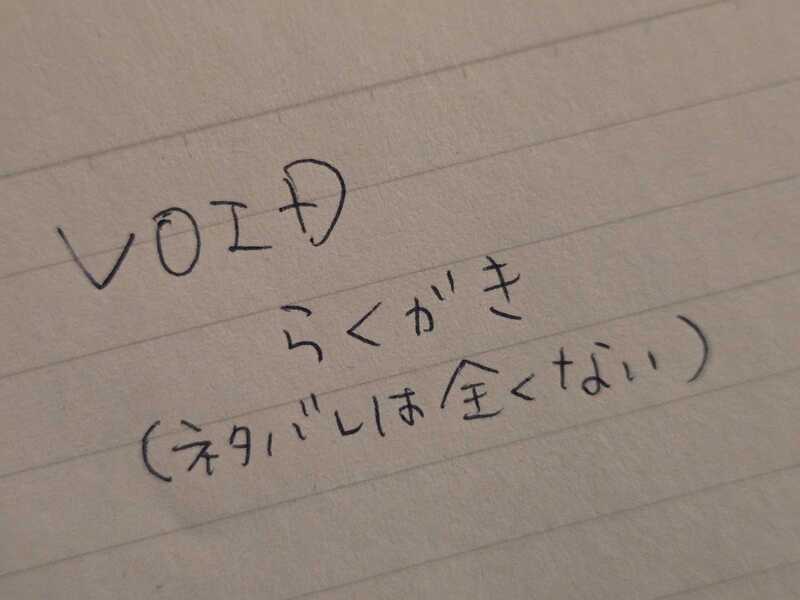 VOID
らくがき
(ネタバレは全くない)